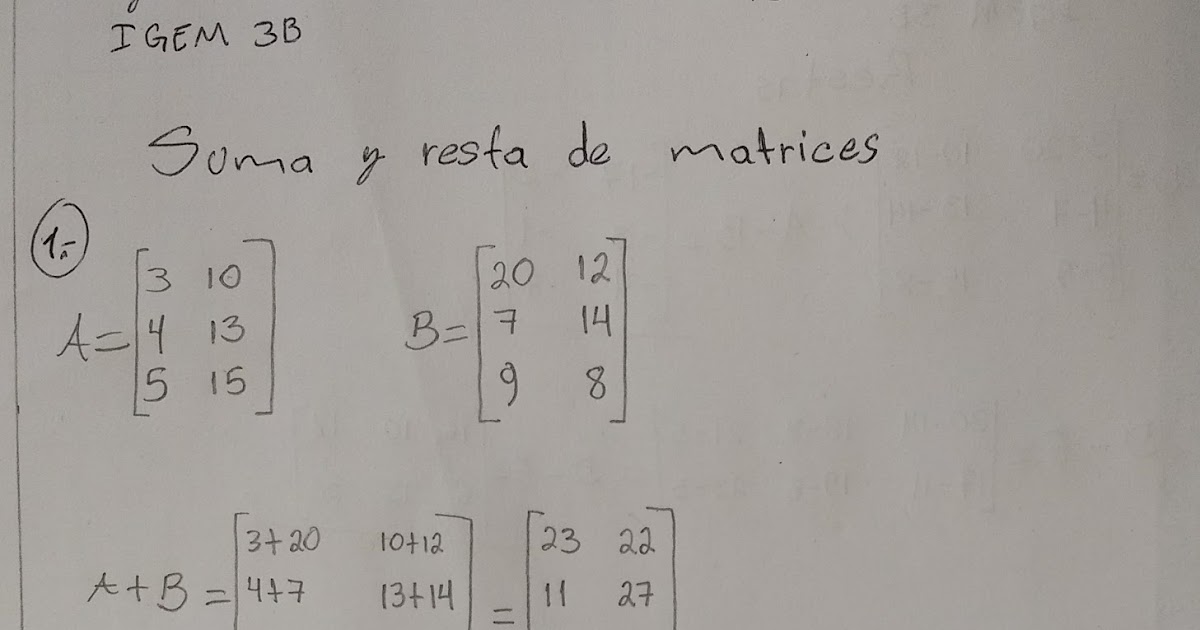 IGEM 3B
Suma y resta de matrices
1.-
A= [3 10
4 13
5 15]
B= [20 12
7 14
9 8]
A+B = [3+20 10+12
4+7 13+14] = [23 22
11 27]